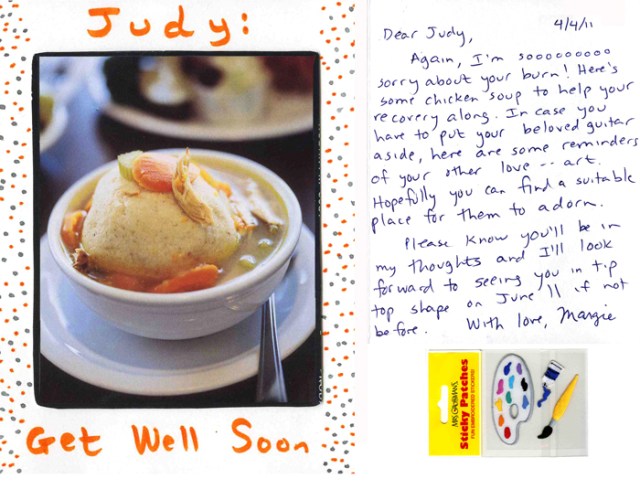 Judy:
Get Well Soon
4/4/11
Dear Judy,
Again, I'm soooooooooo
sorry about your burn! Here's
some chicken soup to help your
recovery along. In case you
have to put your beloved guitar
aside, here are some reminders
of your other love -- art.
Hopefully you can find a suitable
place for them to adorn.
Please know you'll be in
my thoughts and I'll look
forward to seeing you in tip
top shape on June 11 if not
before. With love, Margie
MRS. GROSSMAN'S
Sticky Patches